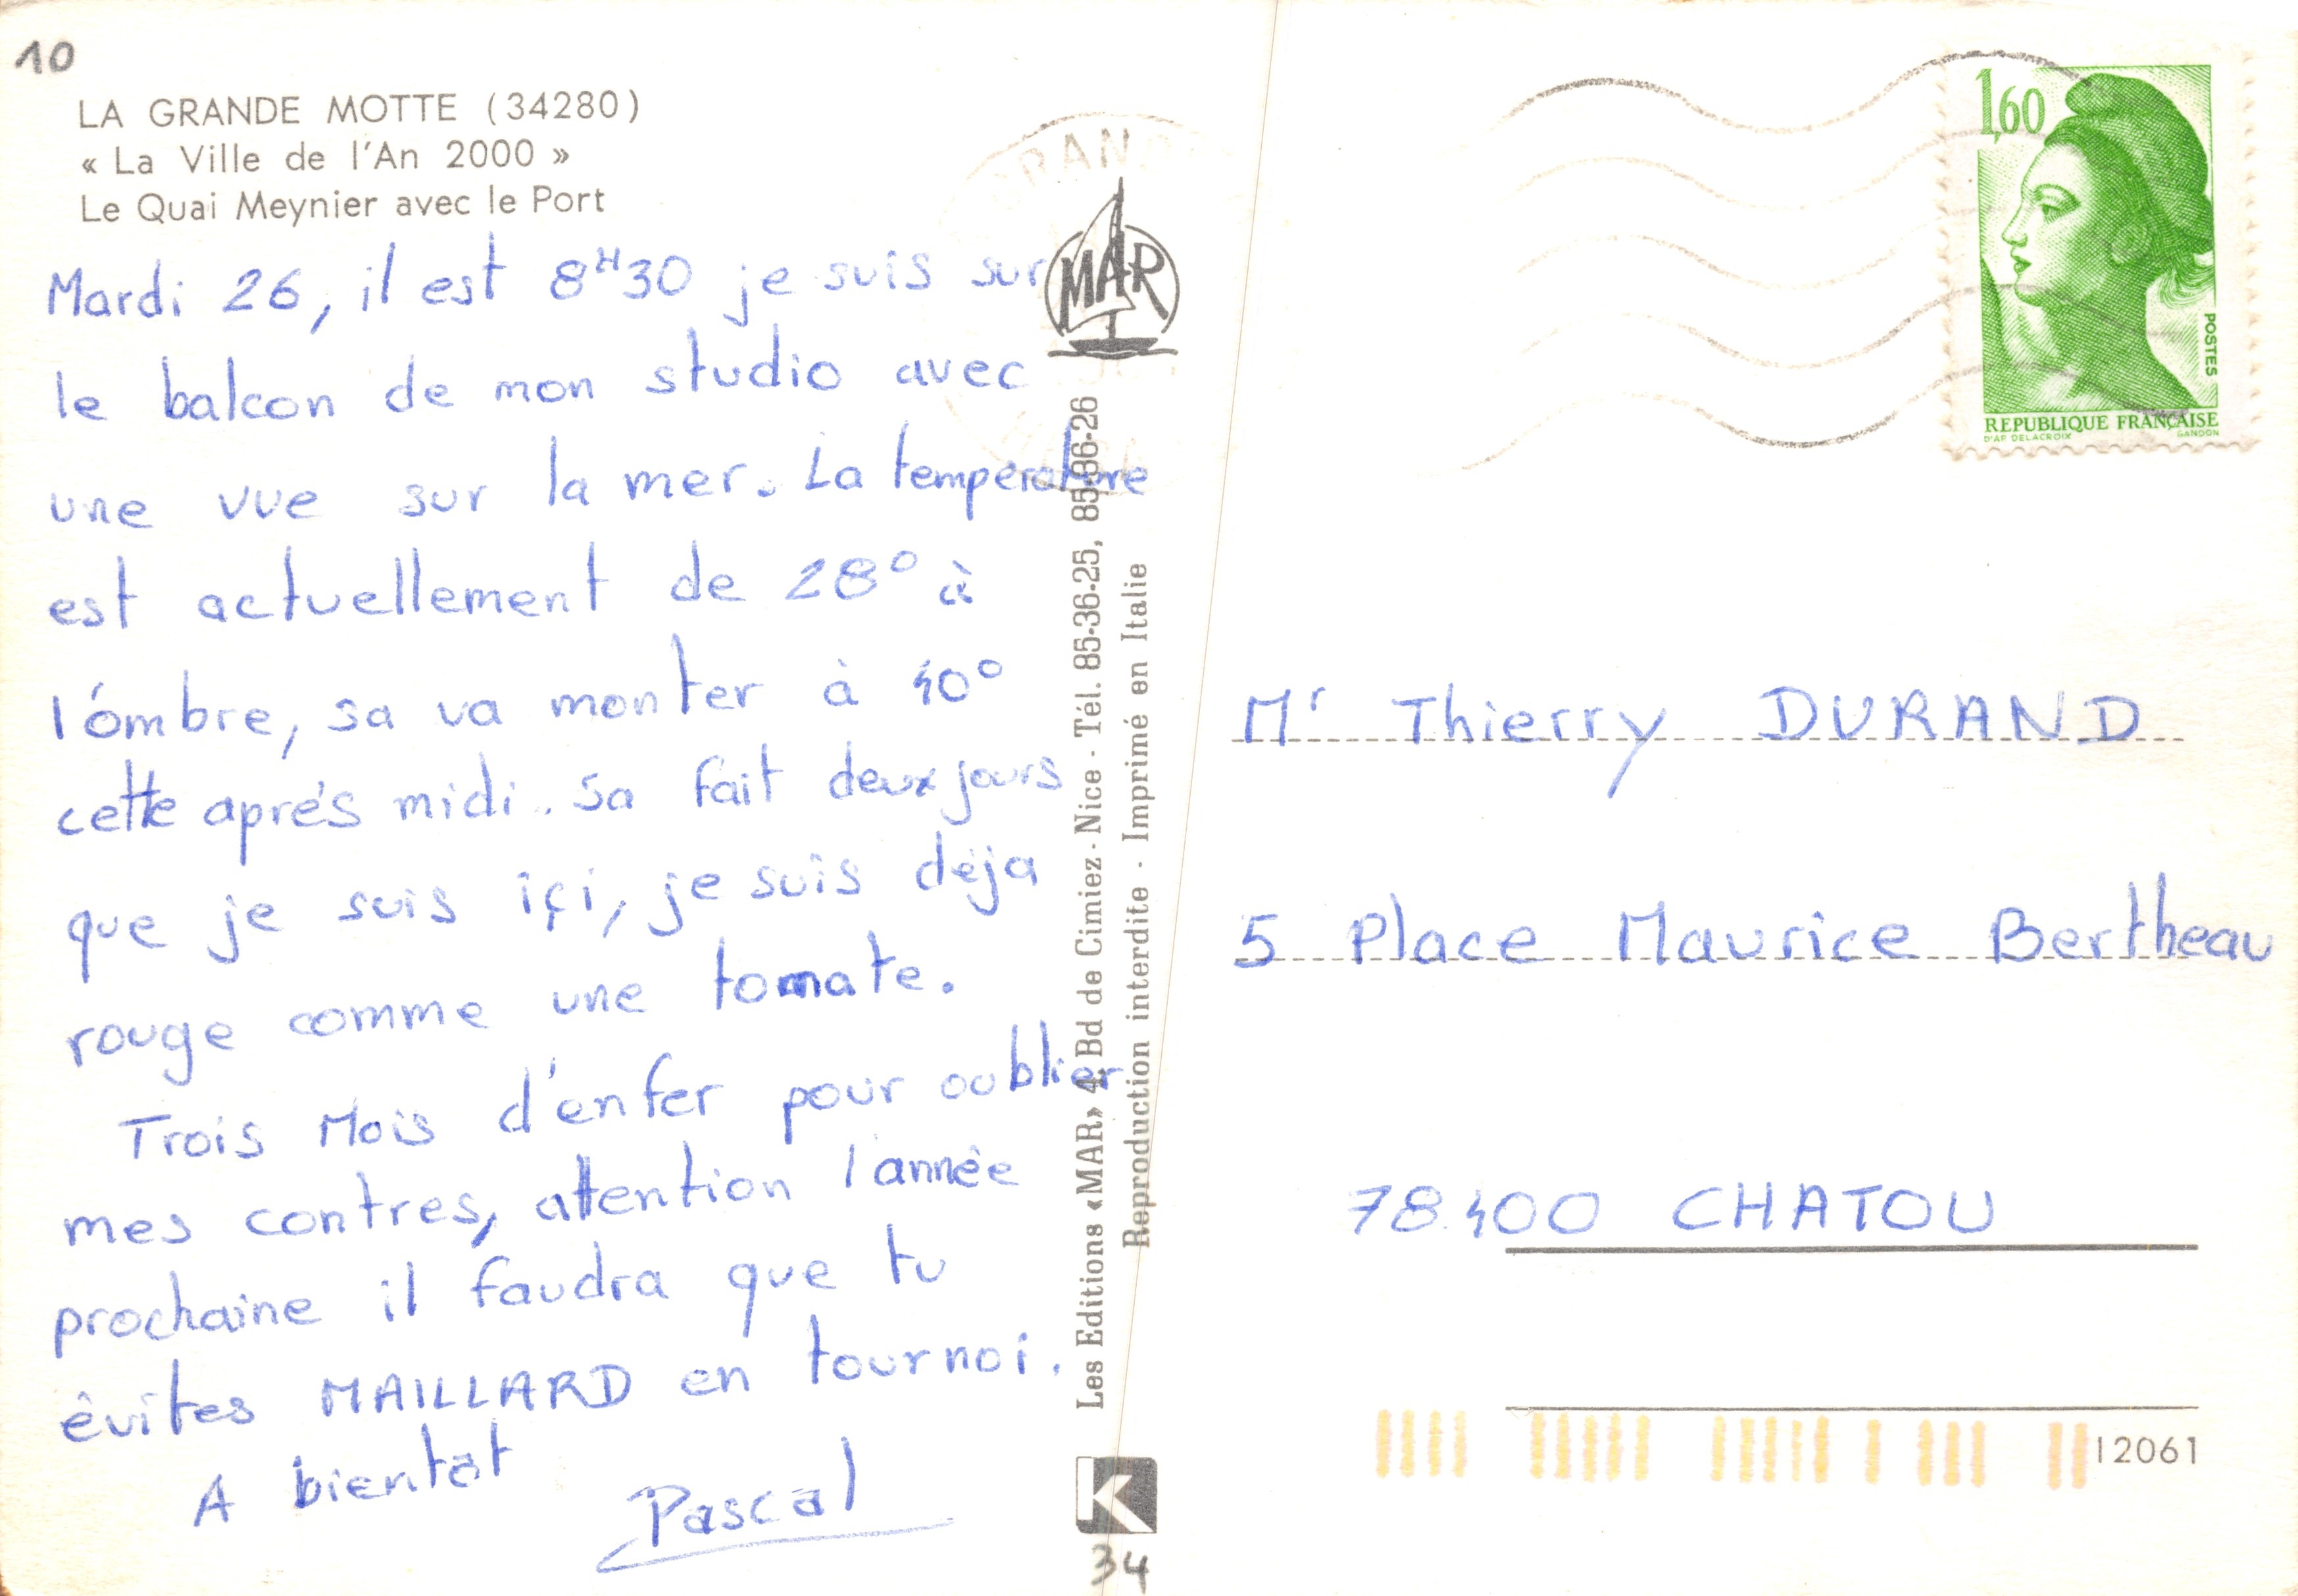 10
LA GRANDE MOTTE (34280)
« La Ville de l'An 2000 »
Le Quai Meynier avec le Port
Mardi 26, il est 8H30 je suis sur
le balcon de mon studio avec
une vue sur la mer. La température
est actuellement de 28° à
l'ombre, sa va monter à 40°
cette aprés midi. Sa fait deux jours
que je suis içi, je suis déja
rouge comme une tomate.
Trois Mois d'enfer pour oublier
mes contres, attention l'année
prochaine il faudra que tu
évites MAILLARD en tournoi.
A bientôt
Pascal
GRAND
MAR
Les Editions «MAR» 4, Bd de Cimiez - Nice - Tél. 85-36-25, 85-86-26
Reproduction interdite - Imprimé en Italie
K
34
1,60
POSTES
REPUBLIQUE FRANÇAISE
D'AP DELACROIX GANDON
Mr Thierry DURAND
5 Place Maurice Bertheau
78.400 CHATOU
12061